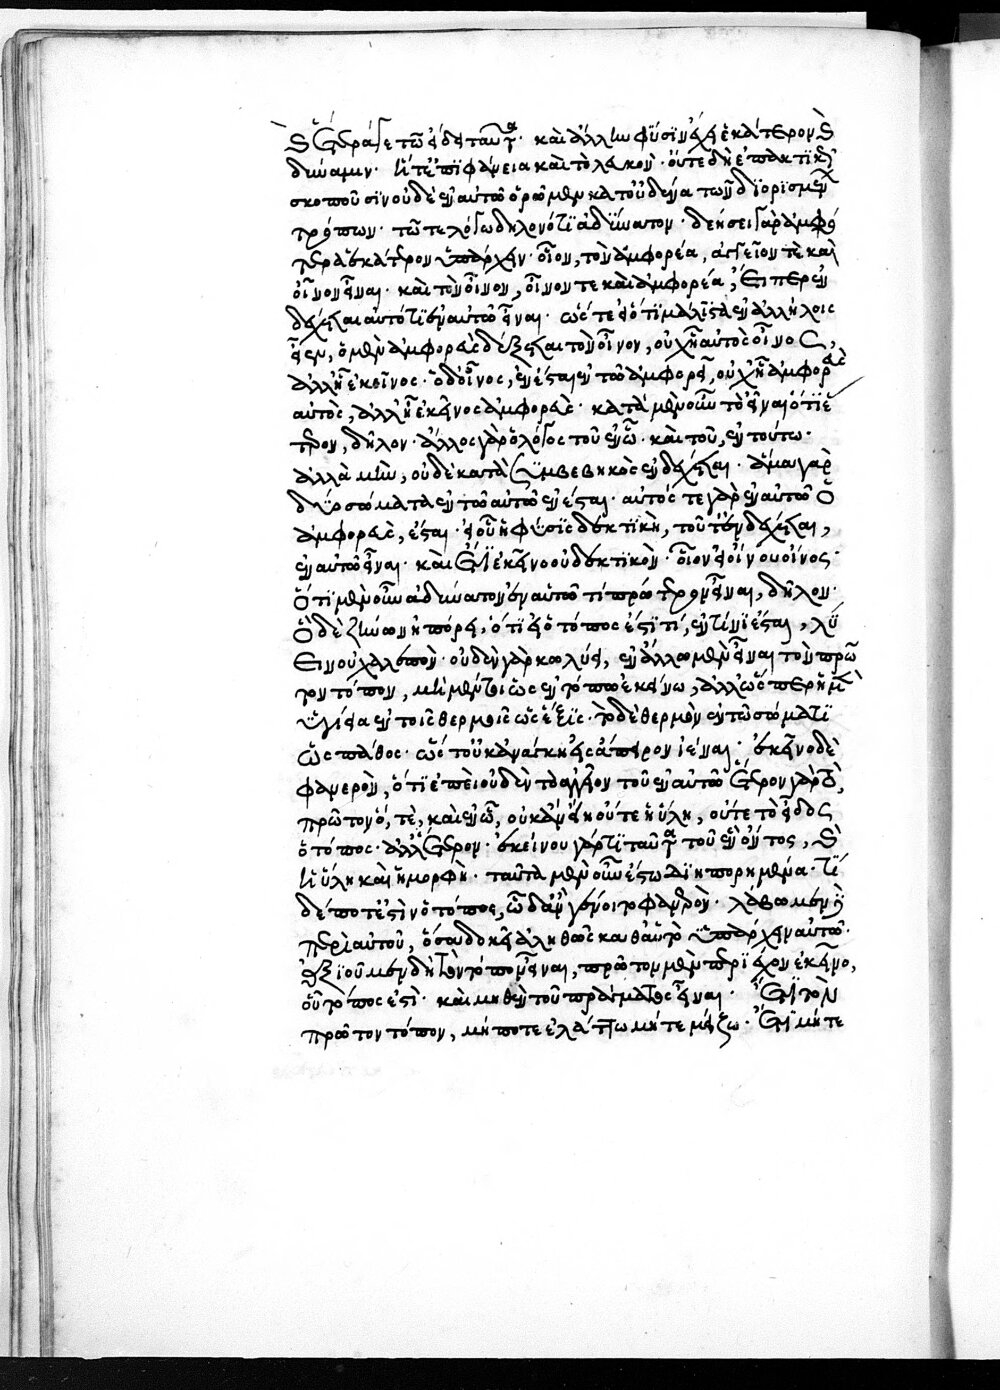 καὶ ἕτερά γε τῷ εἴδει ταῦτα· καὶ ἄλλην φύσιν ἔχει ἑκάτερον καὶ
δύναμιν· ἥ τ' ἐπιφάνεια καὶ τὸ λευκόν· οὔτε δὴ ἐπακτικῶς
σκοποῦσιν οὐδὲν ἐν αὑτῷ ὁρῶμεν κατ' οὐδένα τῶν διορισμῶν
τρόπων· τῷ τε λόγῳ δῆλον ὅτι ἀδύνατον· δεήσει γὰρ ἀμφό
τερα ἑκάτερον ὑπάρχειν· οἷον, τὸν ἀμφορέα, ἀγγεῖον τὲ καὶ
οἶνον εἶναι· καὶ τὸν οἶνον, οἶνον τε καὶ ἀμφορέα, εἴπερ ἐν
δέχεται αὐτό τι ἐν αὑτῷ εἶναι· ὥστε εἰ ὅτι μάλιστα ἐν ἀλλήλοις
εἶεν, ὁ μὲν ἀμφορεὺς δέξεται τὸν οἶνον, οὐχ ᾗ αὐτὸς οἶνος,
ἀλλ' ᾗ ἐκεῖνος· ὁ δ' οἶνος, ἐνέσται ἐν τῷ ἀμφορεῖ, οὐχ ᾗ ἀμφορεὺς
αὐτὸς, ἀλλ' ᾗ ἐκεῖνος ἀμφορεὺς· κατὰ μὲν οὖν τὸ εἶναι ὅτι ἕ
τερον, δῆλον· ἄλλος γὰρ ὁ λόγος τοῦ ἐν ᾧ· καὶ τοῦ, ἐν τούτω·
ἀλλὰ μὴν, οὐδὲ κατὰ συμβεβηκὸς ἐνδέχεται· ἅμα γὰρ
δύο σώματα ἐν τῷ αὐτῷ ἐνέσται· αὐτός τε γὰρ ἐν αὑτῷ ὁ
ἀμφορεὺς, ἔσται· εἰ οὗ ἡ φύσις δεκτικὴ, τοῦτ' ἐνδέχεται,
ἐν αὑτῷ εἶναι· καὶ ἔτι ἐκεῖνο οὗ δεκτικὸν· οἷον εἰ οἴνου οἶνος·
ὅτι μὲν οὖν ἀδύνατον ἐν αὑτῷ τι πρώτως εἶναι, δῆλον·
ὃ δὲ ζήνων ἠπόρει, ὅτι εἰ ὁ τόπος ἐστί τι, ἔν τινι ἔσται, λύ
ειν οὐ χαλεπὸν· οὐδὲν γὰρ κωλύει, ἐν ἄλλω μὲν εἶναι τὸν πρῶ
τον τόπον, μὴ μέντοι ὡς ἐν τόπω ἐκείνω, ἀλλ' ὥσπερ ἡ μὲν
ὑγίεια ἐν τοῖς θερμοῖς ὡς ἕξις· τὸ δὲ θερμὸν ἐν τῷ σώματι
ὡς πάθος· ὥστ' οὐκ ἀνάγκη εἰς ἄπειρον ἰέναι· ἐκεῖνο δὲ
φανερὸν, ὅτι ἐπεὶ οὐδὲν τὸ ἀγγεῖον τοῦ ἐν αὑτῷ ἕτερον γὰρ τὸ
πρῶτον ὅ, τὲ, καὶ ἐν ᾧ, οὐκ ἂν εἴη οὔτε ἡ ὕλη, οὔτε τὸ εἶδος
ὁ τόπος· ἀλλ' ἕτερον· ἐκείνου γάρ τι ταῦτα τοῦ ἐνόντος, καὶ
ἡ ὕλη καὶ ἡ μορφὴ· ταῦτα μὲν οὖν ἔστω διηπορημένα· τί
δέ ποτ' ἐστὶν ὁ τόπος, ὧδ' ἂν γένοιτο φανερὸν· λάβωμεν δὲ
περὶ αὐτοῦ, ὅσα δοκεῖ ἀληθῶς καθ' αὑτὸ ὑπάρχειν αὐτῷ·
ἀξιοῦμεν δὴ τὸν τόπον εἶναι, πρῶτον μὲν περιέχον ἐκεῖνο,
οὗ τόπος ἐστὶ· καὶ μηθὲν τοῦ πράγματος εἶναι· ἔτι τὸν
πρῶτον τόπον, μήποτε ἐλάττω μήτε μείζω· ἔτι μήτε